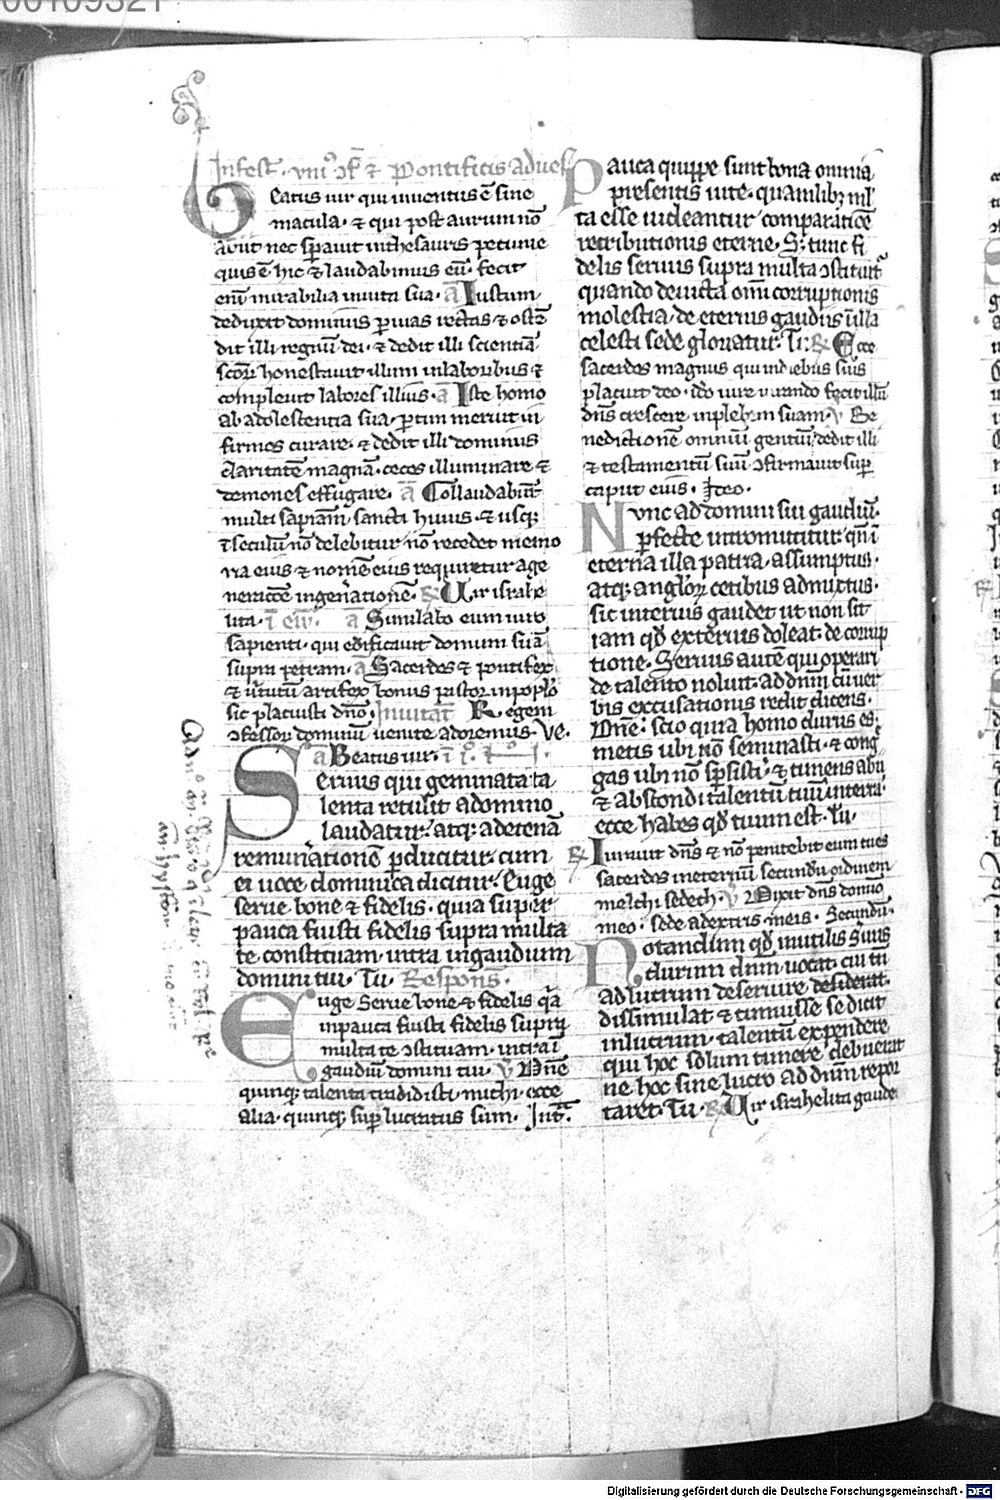 00109321
In fest. vni9 ɔf. et Pontificis ad vesp.
Beatus uir qui inuentus ē sine
macula. ⁊ qui post aurum nō
abiit nec sp̄auit in thesauris pecunie
quis ē hic ⁊ laudabimus eū. fecit
eni mirabilia in uita sua. a Iustum
deduxit dominus p uias rectas ⁊ ostē
dit illi regnū dei. ⁊ dedit illi scientiā
scōꝝ honestauit illum in laboribus ⁊
compleuit labores illius. a Iste homo
ab adolescentia sua. partim meruit in
firmos curare. ⁊ dedit illi dominus
claritatē magnā. cecos illuminare ⁊
demones effugare. a Collaudabūt
multi sapiam. sancti huius. ⁊ usqꝫ
ī seculū nō delebitur nō recedet memo
ria eius ⁊ nomē eius requiretur a ge
neratōe in gen̄ationē. ꝶ Uir israhe
lita. a Similabo eum uiro
sapienti. qui edificauit domum suā
supra petram. a Sacerdos ⁊ pontifex
⁊ u̇tutū artifex bonus pastor in poplo
sic placuisti dn̄o. Inuitat. Regem
ɔfessoꝝ dominū uenite adoremus. Ve.
a Beatus uir.
Seruus qui geminata ta
lenta retulit a domino
laudatur. atqꝫ ad eternā
remun̄ationē ꝑducitur. cum
ei uoce dominica dicitur. Euge
serue bone ⁊ fidelis. quia super
pauca fuisti fidelis supra multa
te constituam. intra in gaudium
domini tui. Tu. Respons.
Euge Serue bone ⁊ fidelis q̄a
in pauca fuisti fidelis supra
multa te ɔstituam. intra ī
gaudiū domini tui. V Dn̄e
quinqꝫ talenta tradidisti michi ecce
alia. quinqꝫ suꝑ lucratus sum. Int̄.
Pauca quippe sunt bona omnia
presentis uite. quamlibꝫ ml'
ta esse uideantur comparatōe
retributionis eterne. Sꝫ tunc fi
delis seruus supra multa ɔstituit
quando deuicta omī corruptionis
molestia. de eternis gaudiis ī illa
celesti sede gloriatur. Tu. ꝶ Ecce
sacerdos magnus qui in diebus suis
placuit deo. ideo iure iurando fecit illū
dn̄s crescere in plebem suam. V Be
nedictionē omniū gentiū dedit illi
⁊ testamentū suū ɔfirmauit suꝑ
caput eius. Ideo.
Nunc ad domini sui gaudiū
ꝑfecte intromittitur. qn̄ ī
eterna illa patria. assumptus.
atqꝫ angloꝝ cetibus admixtus.
sic interius gaudet ut non sit
iam qd exterius doleat de corrup
tione. Seruus autē qui operari
de talento noluit. ad dnm cū uer
bis excusationis redit dicens.
Dn̄e. scio quia homo durus es.
metis ubi nō seminasti. ⁊ conḡ
gas ubi nō sp̄sisti. ⁊ timens abii
⁊ abscondi talentū tuū in terra.
ecce habes qd tuum est. Tu.
ꝶ Iurauit dn̄s ⁊ nō penitebit eum tu es
sacerdos in eternū secundū ordinem
melchisedech. V Dixit dn̄s domino
meo. sede a dextris meis. Secundū.
Notandum qd inutilis s̄uus
durum dnm uocat. cui tn̄
ad lucrum deseruire desiderat.
dissimulat ⁊ timuisse se dicit
in lucrum. talentū expendere
qui hoc solum timere debuerat
ne hoc sine lucro ad dnm repor
taret. Tu. ꝶ Uir israhelita gaude
Digitalisierung gefördert durch die Deutsche Forschungsgemeinschaft - DFG